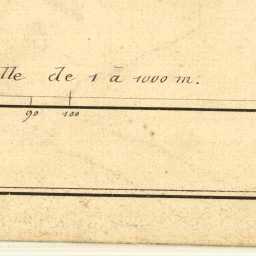 lle de 1 à 1000 m.
90 100